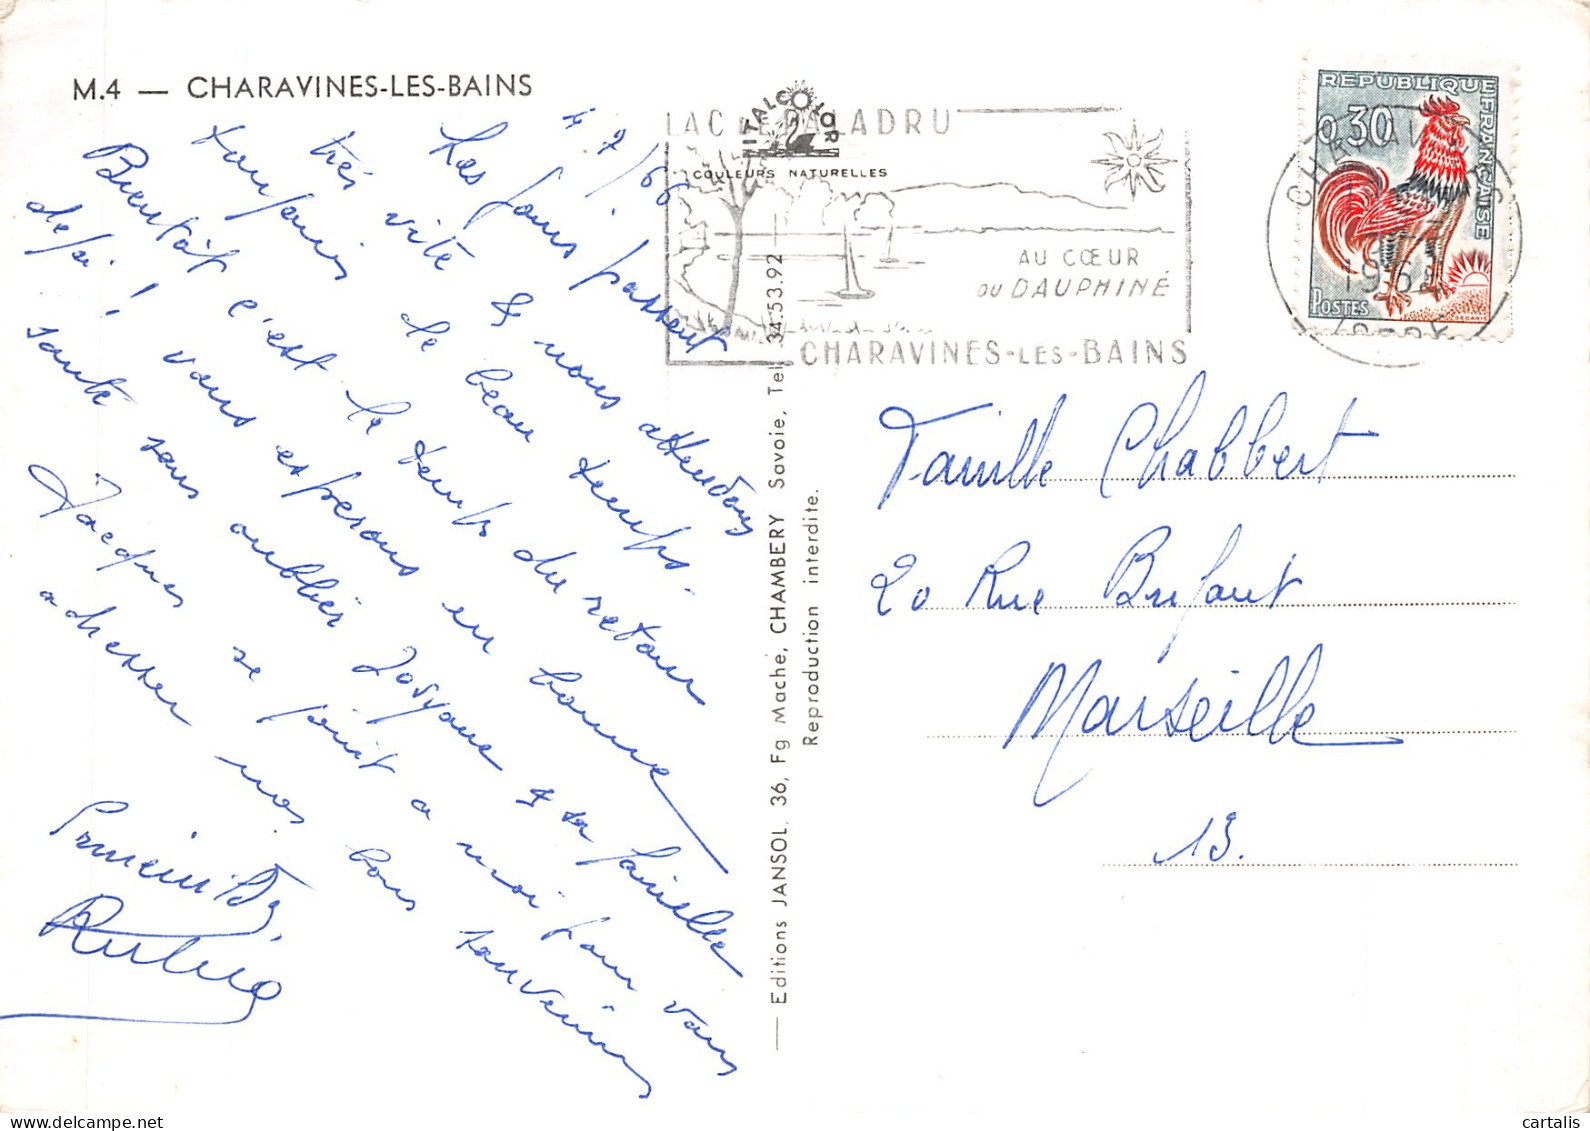 M.4 — CHARAVINES-LES-BAINS
4 7/66
Les jours passent
très vite & nous attendons
toujours de beau temps.
Bientôt c'est le temps du retour
déjà ! vous esperons en bonne
santé sans oublier Josyane & sa famille
Jacques se joint a moi pour vous
adresser nos bons souvenirs
ITALCOLOR
COULEURS NATURELLES
LAC DE PALADRU
AU CŒUR
DU DAUPHINÉ
CHARAVINES-LES-BAINS
REPUBLIQUE FRANÇAISE
0,30
POSTES
DECARIS
Editions JANSOL, 36, Fg Maché, CHAMBERY Savoie, Tel. 34.53.92 —
Reproduction interdite.
Famille Chabbert
20 Rue Brifaut
Marseille
13.
cartalis